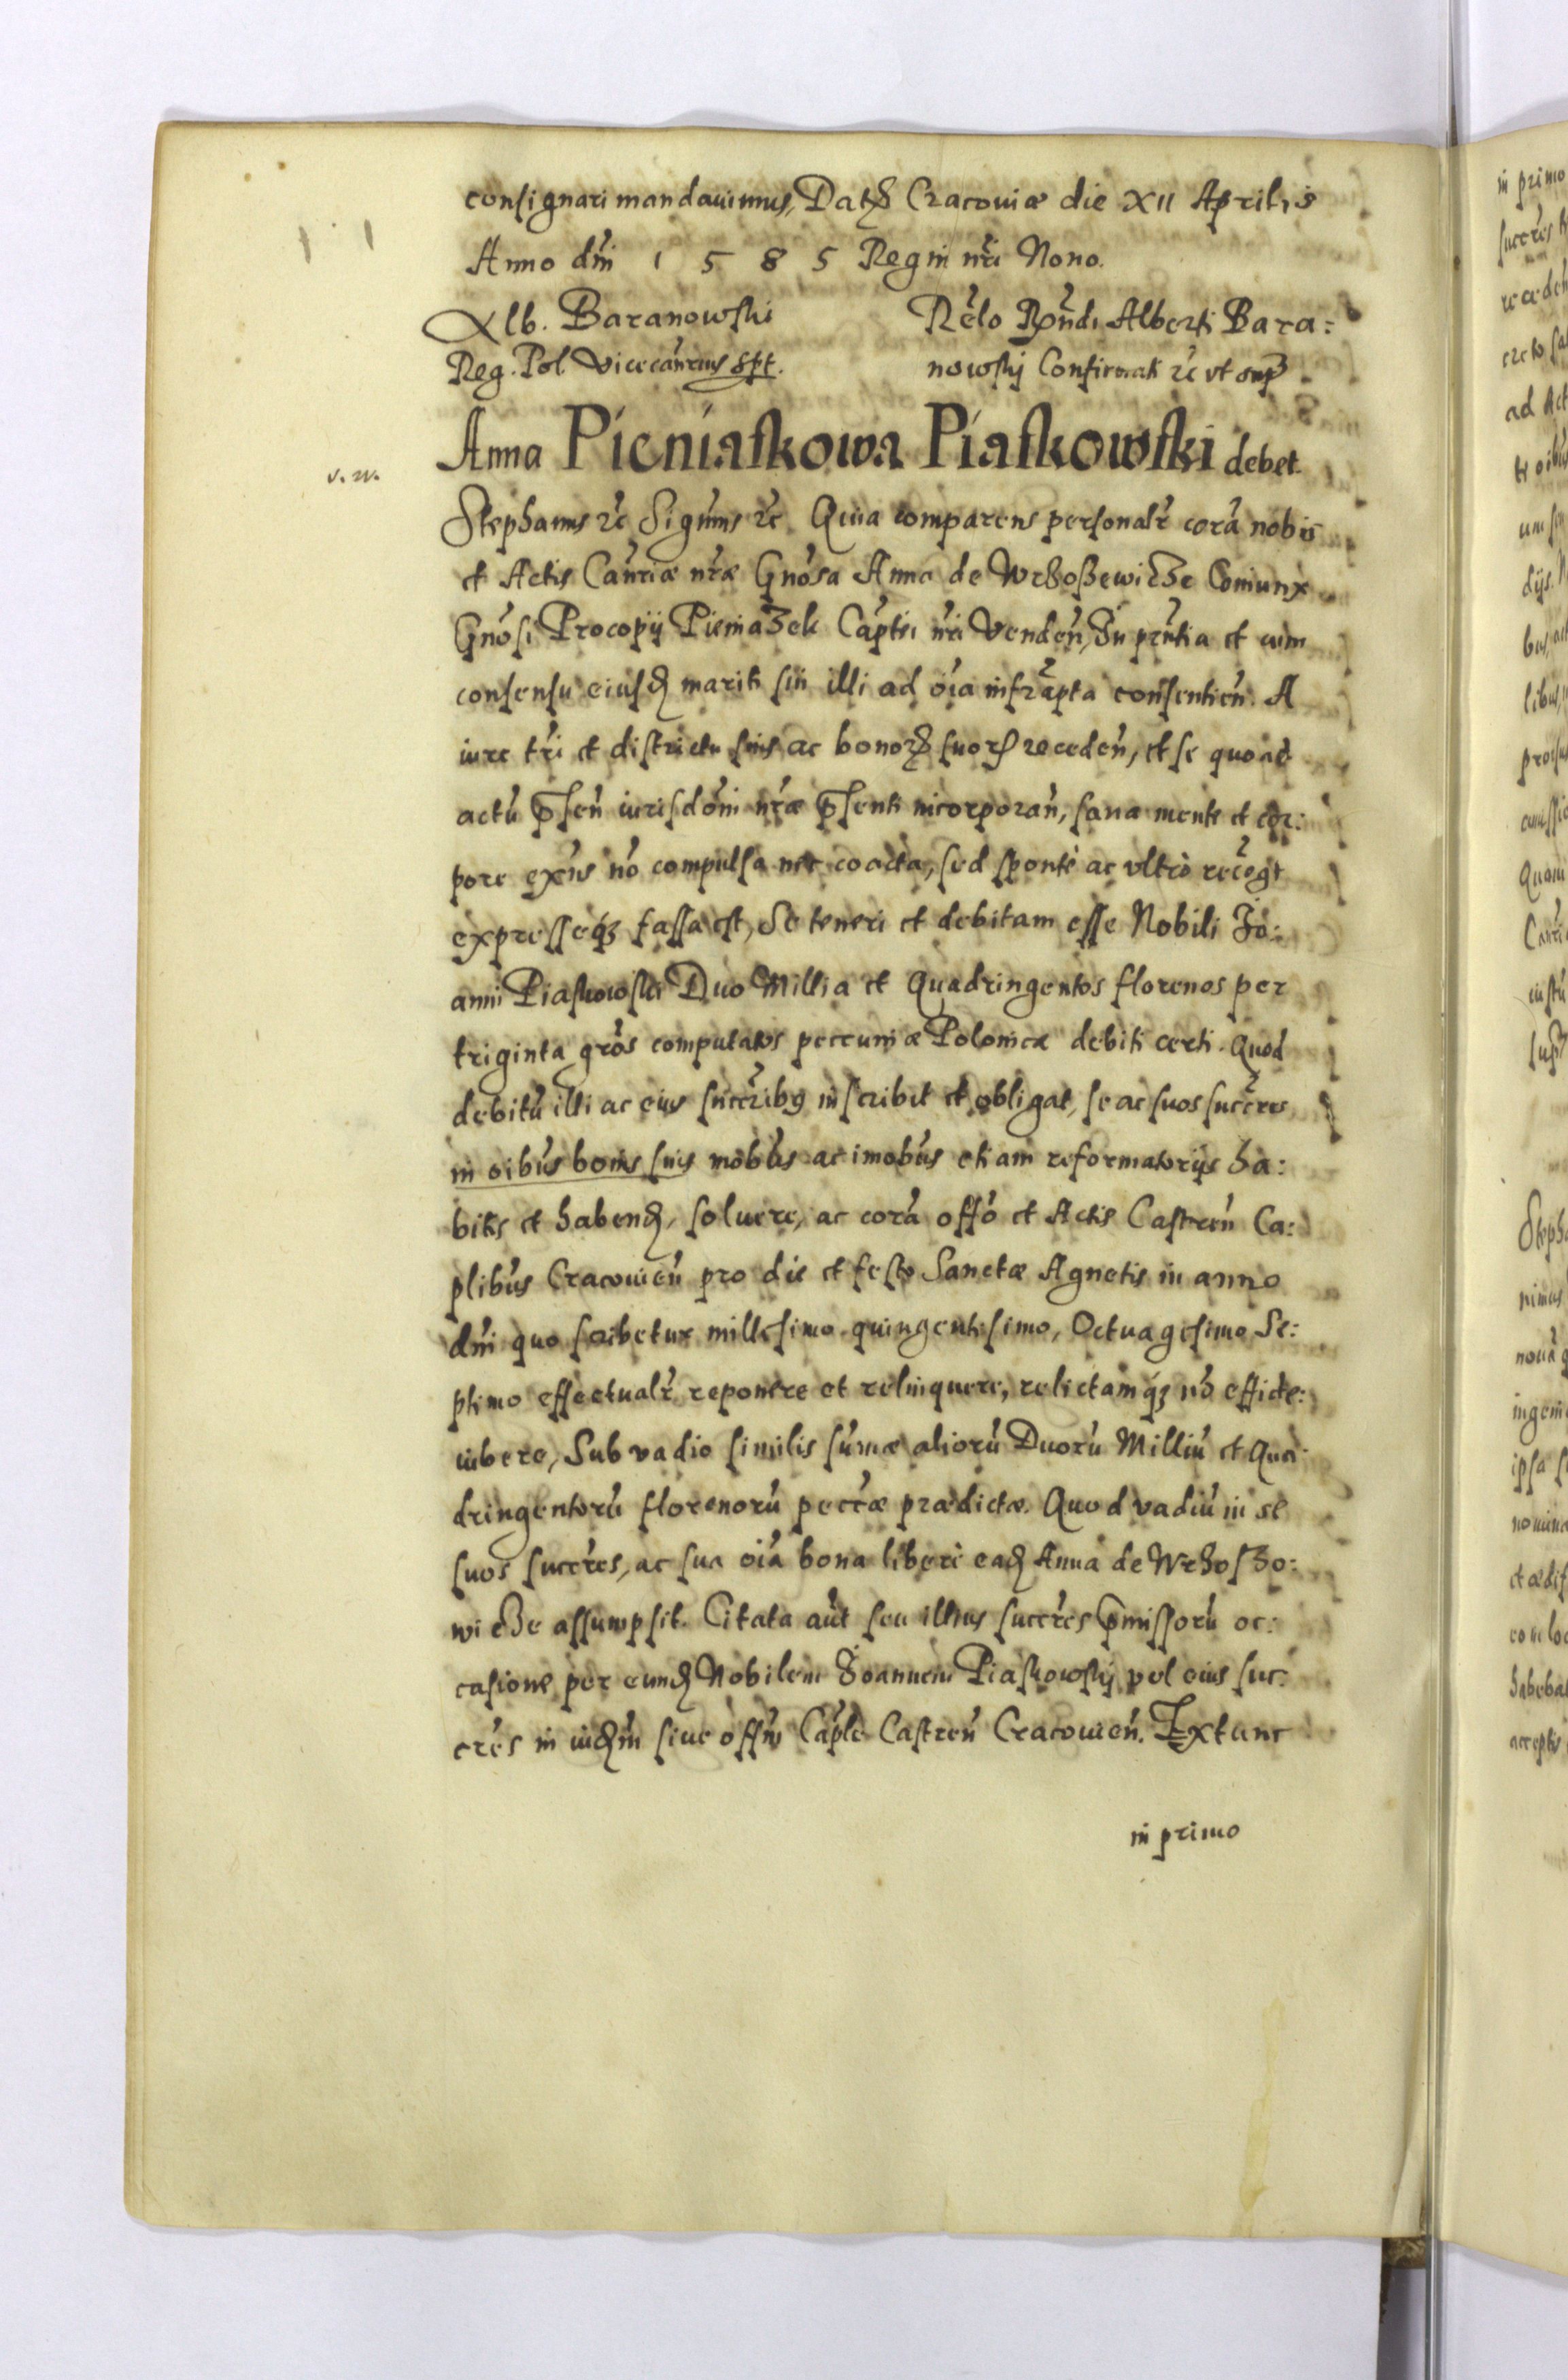 consignari mandauimus, Datȝ Cracouiæ die XII Aprilis
Anno dni 1 5 8 5 Regni nri Nono.
Alb. Baranowski
Reg. Pol Vicecanrius sspt.
Relo Rndi Alberti Bara:
nowskj Confirmati rc vt sup
v. w.
Anna Pieniaskowa Piaskowski debet.
Stephanus rc Signus rc. Quia comparens personalr corā nobis
et Actis Canriæ nræ Gnosa Anna de Wrzoszewicze Coniunx
Gnosi Procopij Pieniazek Captei nri Venden, In prntia et cum
consensu eiusd mariti sui illi ad oia infrapta consentien. A
iure tri et districtu suis ac bonorȝ suorȝ receden, et se quoad
actū psen iurisdoni nræ psenti incorporan, sana mente et cor:
pore exns no compulsa nec coacta, sed sponte ac vltrò recogt
expresseqȝ fassa est, Se teneri et debitam esse Nobili Jo:
anni Piaskowski Duo Millia et Quadringentos florenos per
triginta gros computatos pecuniæ Polonicæ debiti certi. Quod
debitū illi ac eius succribꝰ inscribit et obligat, se ac suos succres
in oibus bonis suis mobbus ac imobus etiam reformatorijs ha:
bitis et habend, soluere, ac corā offo et Actis Castren Ca:
plibus Cracouien pro die et festo Sanctæ Agnetis in anno
dni quo scribetur millesimo quingentesimo, Octuagesimo Se:
ptimo effectualr reponere et relinquere, relictamqȝ no efficte:
iubere, Sub vadio similis sumæ aliorū Duorū Milliū et Qua:
dringentorū florenorū pecuæ prædictæ. Quod vadiū in se
suos succres, ac sua oia bona liberè ead Anna de Wrzoszo:
wicze assumpsit. Citata aut seu illius succres pmissorū oc:
casione per eund Nobilem Joannem Piaskowskj vel eius suc:
cres in iudm siue offm Caple Castren Cracouien. Extunc
in primo